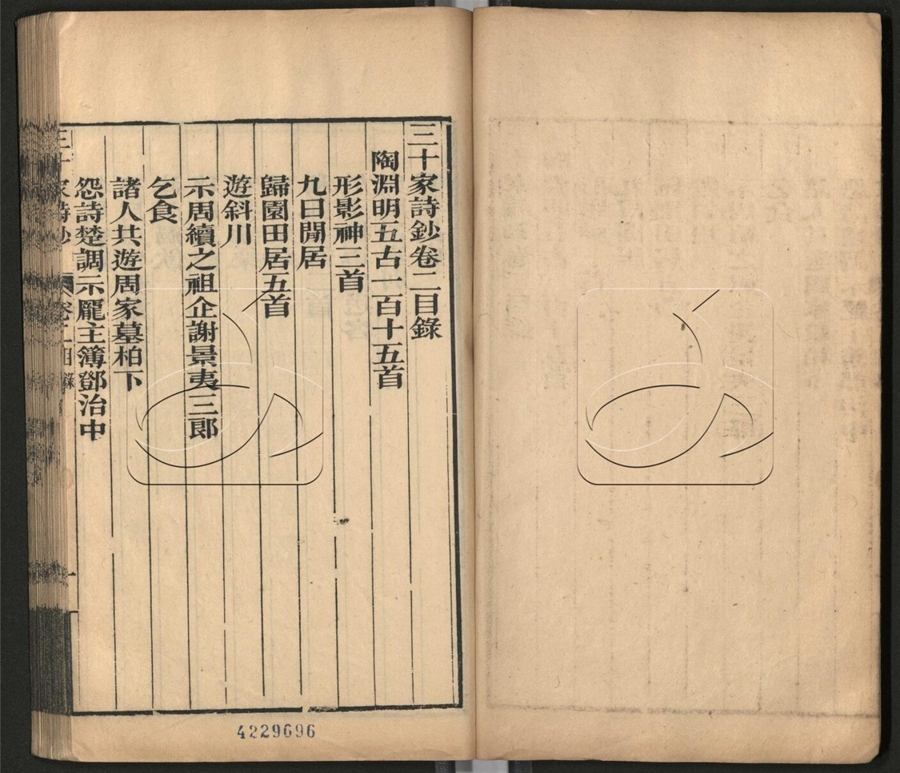 三十家詩鈔卷二目錄
陶淵明五古一百十五首
形影神三首
九日閒居
歸園田居五首
遊斜川
示周續之祖企謝景夷三郎
乞食
諸人共遊周家墓柏下
怨詩楚調示龐主簿鄧治中
家詩鈔 卷二目錄 一
4229696